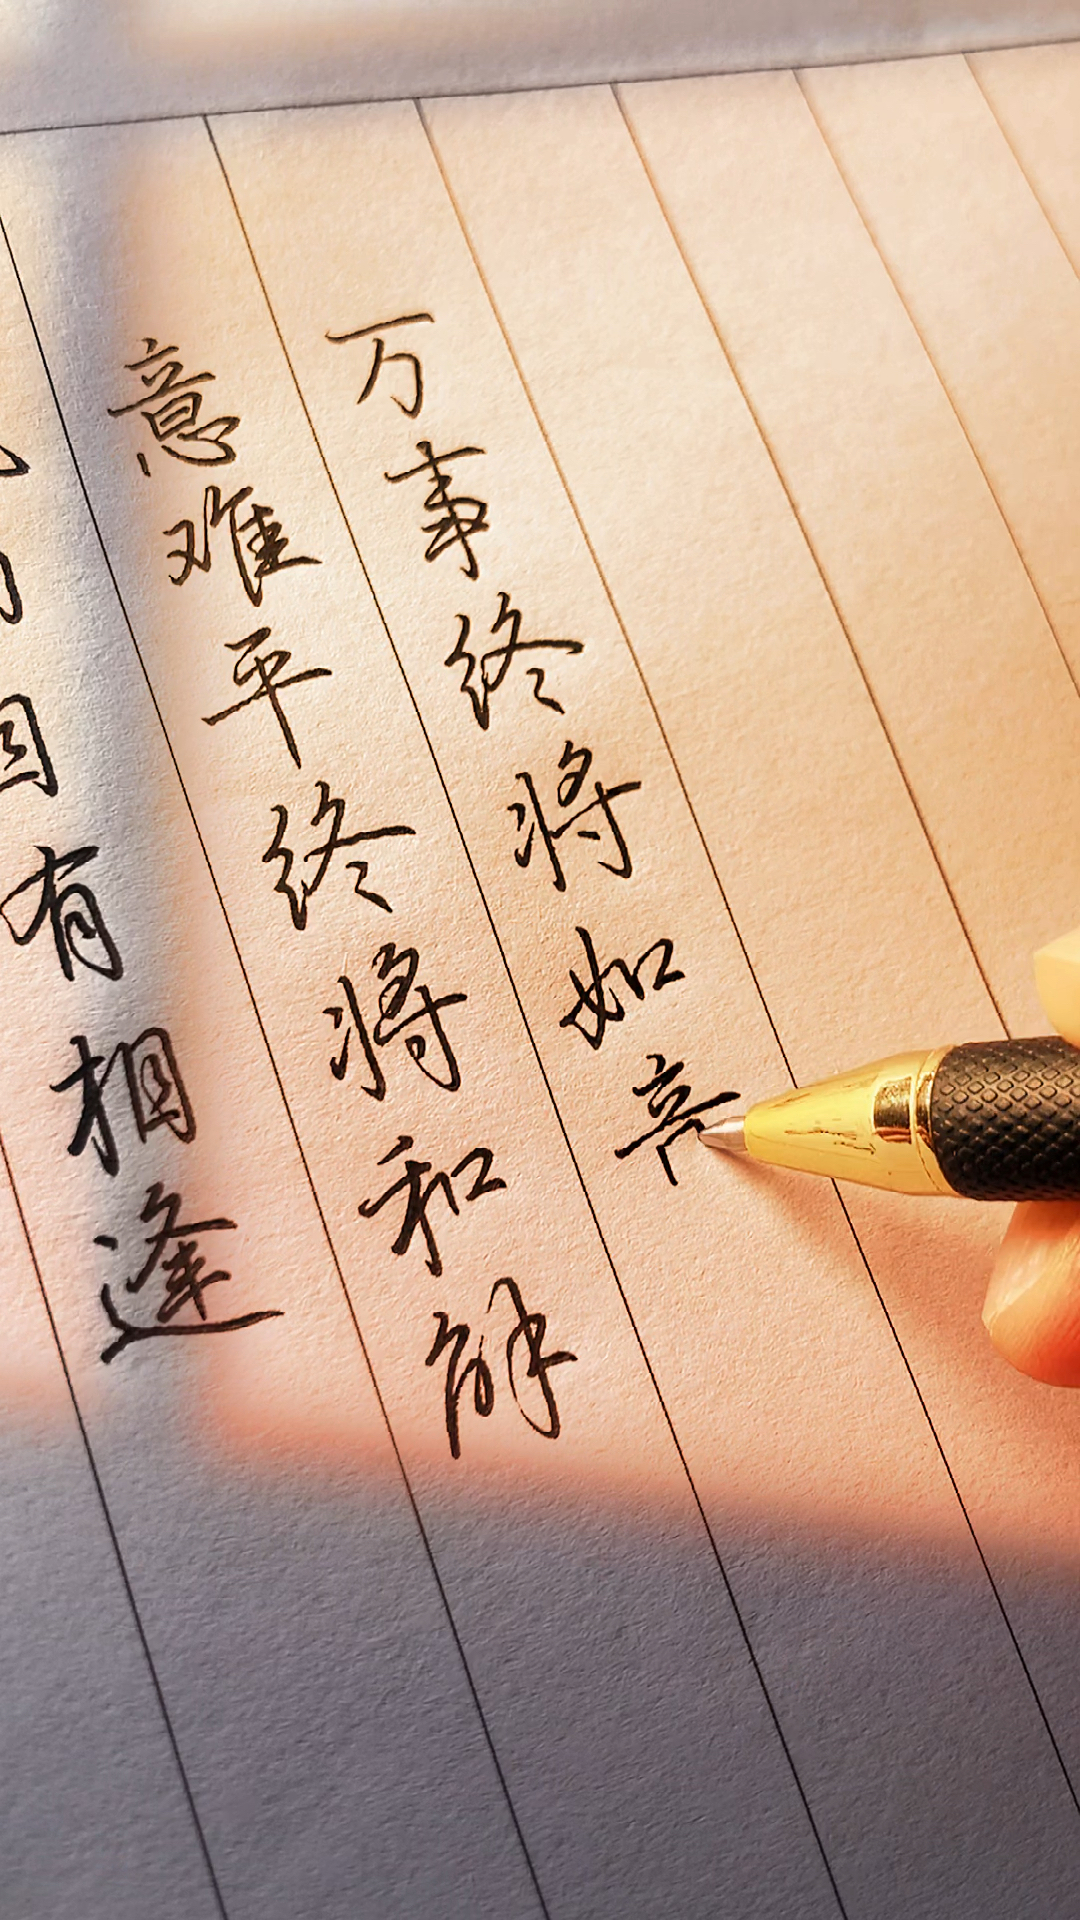 有相逢
意难平终将和解
万事终将如